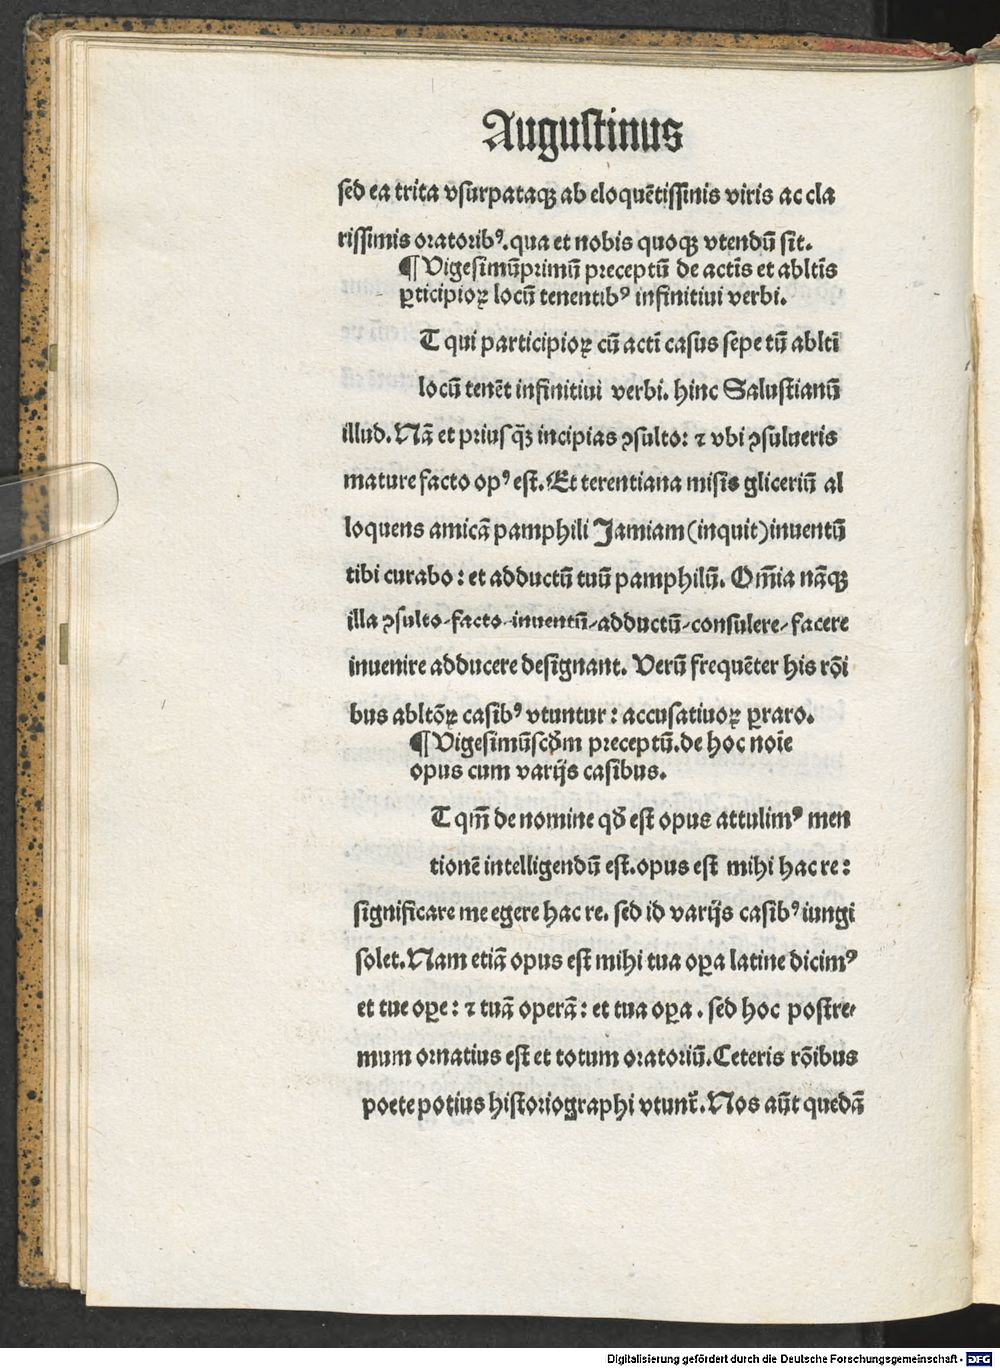 Augustinus
sed ea trita vsurpataqꝫ ab eloquētissinis viris ac cla
rissimis oratoribꝰ.qua et nobis quoqꝫ vtendū sit.
¶ Vigesimūprimū preceptū de actīs et abltīs
ꝑticipioꝝ locū tenentibꝰ infinitiui verbi.
T qui participioꝝ cū actī casus sepe tū abltī
locū tenēt infinitiui verbi. hinc Salustianū
illud. Nā et priusqꝫ̄ incipias ꝯsulto: ⁊ vbi ꝯsulueris
mature facto opꝰ est. Et terentiana misis gliceriū al
loquens amicā pamphili Jamiam (inquit) inuentū
tibi curabo : et adductū tuū pamphilū. Om̄ia nāqꝫ
illa ꝯsulto-facto-inuentū-adductū-consulere-facere
inuenire adducere designant. Verū frequēter his rōi
bus abltōꝝ casibꝰ vtuntur : accusatiuoꝝ ꝑraro.
¶ Vigesimūscd̄m preceptū.de hoc noīe
opus cum varijs casibus.
T qm̄ de nomine qd̄ est opus attulimꝰ men
tionē intelligendū est.opus est mihi hac re :
significare me egere hac re. sed id varijs casibꝰ iungi
solet. Nam etiā opus est mihi tua oꝑa latine dicimꝰ
et tue oꝑe : ⁊ tuā operā : et tua oꝑa . sed hoc postre-
mum ornatius est et totum oratoriū. Ceteris rōibus
poete potius historiographi vtunt᷑. Nos aūt quedā
Digitalisierung gefördert durch die Deutsche Forschungsgemeinschaft - DFG